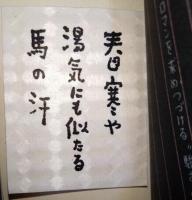 春寒や
湯気にも似たる
馬の汗
ロマンを求めつづける